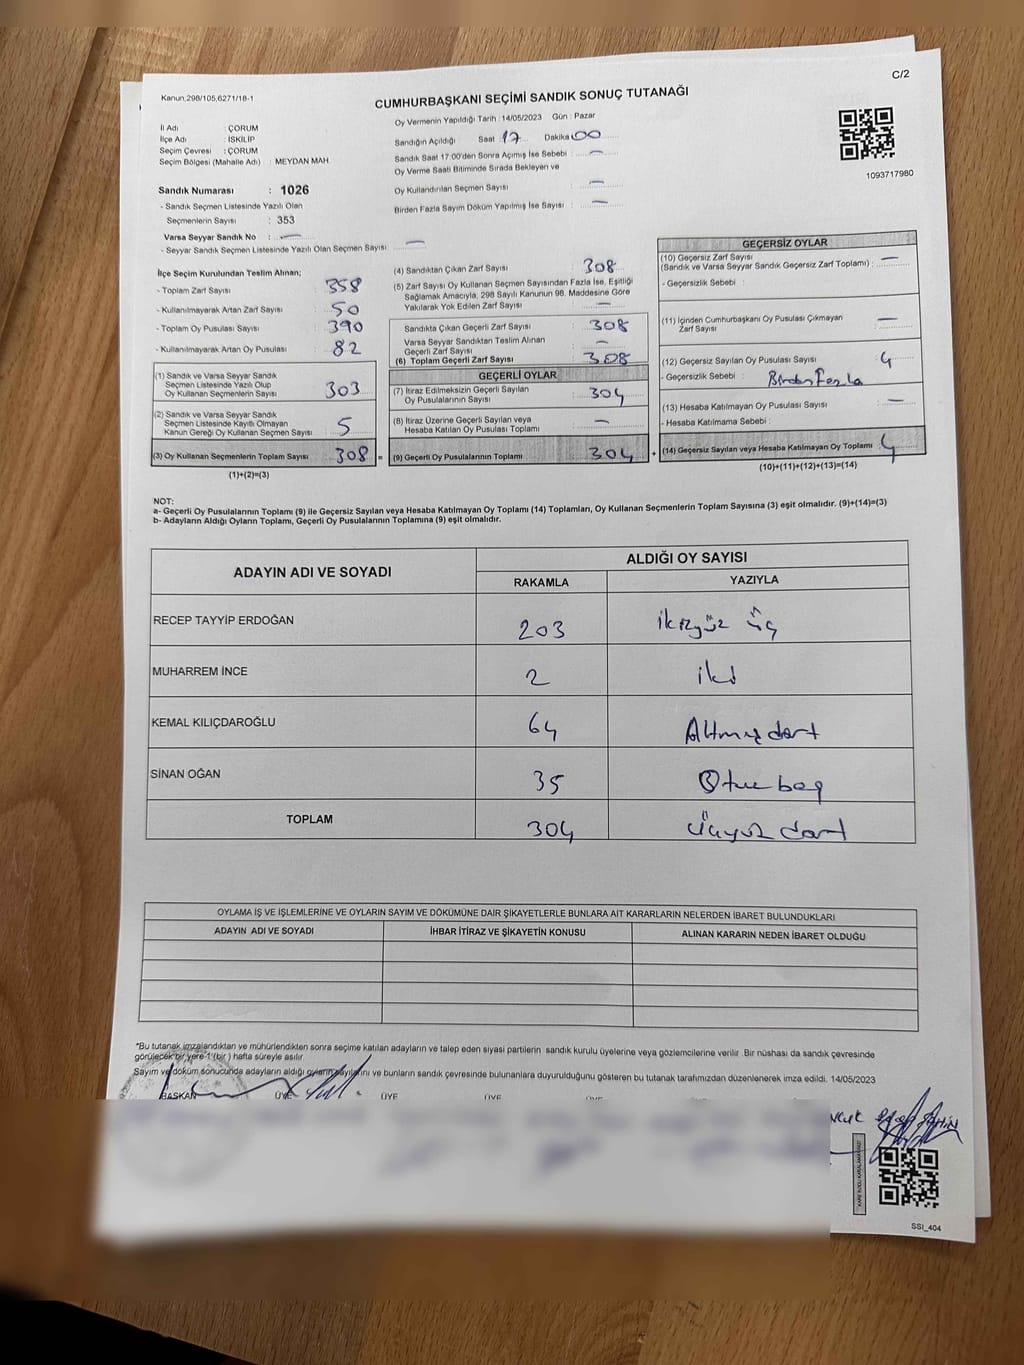 C/2
Kanun,298/105,6271/18-1
CUMHURBAŞKANI SEÇİMİ SANDIK SONUÇ TUTANAĞI
İl Adı : ÇORUM
İlçe Adı : İSKİLİP
Seçim Çevresi : ÇORUM
Seçim Bölgesi (Mahalle Adı) : MEYDAN MAH.
Sandık Numarası : 1026
- Sandık Seçmen Listesinde Yazılı Olan
Seçmenlerin Sayısı : 353
Varsa Seyyar Sandık No : —
- Seyyar Sandık Seçmen Listesinde Yazılı Olan Seçmen Sayısı : —
Oy Vermenin Yapıldığı Tarih : 14/05/2023 Gün : Pazar
Sandığın Açıldığı Saat 17 Dakika 00
Sandık Saat 17:00'den Sonra Açımış İse Sebebi : —
Oy Verme Saati Bitiminde Sırada Bekleyen ve
Oy Kullandırılan Seçmen Sayısı : —
Birden Fazla Sayım Döküm Yapılmış İse Sayısı : —
1093717980
İlçe Seçim Kurulundan Teslim Alınan;
- Toplam Zarf Sayısı : 358
- Kullanılmayarak Artan Zarf Sayısı : 50
- Toplam Oy Pusulası Sayısı : 390
- Kullanılmayarak Artan Oy Pusulası : 82
(1) Sandık ve Varsa Seyyar Sandık
Seçmen Listesinde Yazılı Olup
Oy Kullanan Seçmenlerin Sayısı : 303
(2) Sandık ve Varsa Seyyar Sandık
Seçmen Listesinde Kayıtlı Olmayan
Kanun Gereği Oy Kullanan Seçmen Sayısı : 5
(3) Oy Kullanan Seçmenlerin Toplam Sayısı : 308 =
(1)+(2)=(3)
(4) Sandıktan Çıkan Zarf Sayısı : 308
(5) Zarf Sayısı Oy Kullanan Seçmen Sayısından Fazla İse, Eşitliği
Sağlamak Amacıyla, 298 Sayılı Kanunun 98. Maddesine Göre
Yakılarak Yok Edilen Zarf Sayısı : —
Sandıkta Çıkan Geçerli Zarf Sayısı : 308
Varsa Seyyar Sandıktan Teslim Alınan
Geçerli Zarf Sayısı : —
(6) Toplam Geçerli Zarf Sayısı : 308
GEÇERLİ OYLAR
(7) İtiraz Edilmeksizin Geçerli Sayılan
Oy Pusulalarının Sayısı : 304
(8) İtiraz Üzerine Geçerli Sayılan veya
Hesaba Katılan Oy Pusulası Toplamı : —
(9) Geçerli Oy Pusulalarının Toplamı : 304 +
GEÇERSİZ OYLAR
(10) Geçersiz Zarf Sayısı
(Sandık ve Varsa Seyyar Sandık Geçersiz Zarf Toplamı) : —
- Geçersizlik Sebebi :
(11) İçinden Cumhurbaşkanı Oy Pusulası Çıkmayan
Zarf Sayısı : —
(12) Geçersiz Sayılan Oy Pusulası Sayısı : 4
- Geçersizlik Sebebi : Birden Fazla
(13) Hesaba Katılmayan Oy Pusulası Sayısı : —
- Hesaba Katılmama Sebebi :
(14) Geçersiz Sayılan veya Hesaba Katılmayan Oy Toplamı : 4
(10)+(11)+(12)+(13)=(14)
NOT:
a- Geçerli Oy Pusulalarının Toplamı (9) ile Geçersiz Sayılan veya Hesaba Katılmayan Oy Toplamı (14) Toplamları, Oy Kullanan Seçmenlerin Toplam Sayısına (3) eşit olmalıdır. (9)+(14)=(3)
b- Adayların Aldığı Oyların Toplamı, Geçerli Oy Pusulalarının Toplamına (9) eşit olmalıdır.
ADAYIN ADI VE SOYADI ALDIĞI OY SAYISI
RAKAMLA YAZIYLA
RECEP TAYYİP ERDOĞAN 203 ikiyüz üç
MUHARREM İNCE 2 iki
KEMAL KILIÇDAROĞLU 64 Altmışdört
SİNAN OĞAN 35 Otuz beş
TOPLAM 304 üçyüz dört
OYLAMA İŞ VE İŞLEMLERİNE VE OYLARIN SAYIM VE DÖKÜMÜNE DAİR ŞİKAYETLERLE BUNLARA AİT KARARLARIN NELERDEN İBARET BULUNDUKLARI
ADAYIN ADI VE SOYADI İHBAR İTİRAZ VE ŞİKAYETİN KONUSU ALINAN KARARIN NEDEN İBARET OLDUĞU
*Bu tutanak imzalandıktan ve mühürlendikten sonra seçime katılan adayların ve talep eden siyasi partilerin sandık kurulu üyelerine veya gözlemcilerine verilir. Bir nüshası da sandık çevresinde
görülecek bir yere 1 (bir ) hafta süreyle asılır.
Sayım ve döküm sonucunda adayların aldığı oyların sayılarını ve bunların sandık çevresinde bulunanlara duyurulduğunu gösteren bu tutanak tarafımızdan düzenlenerek imza edildi. 14/05/2023
BAŞKAN ÜYE ÜYE ÜYE ÜYE
SSI_404